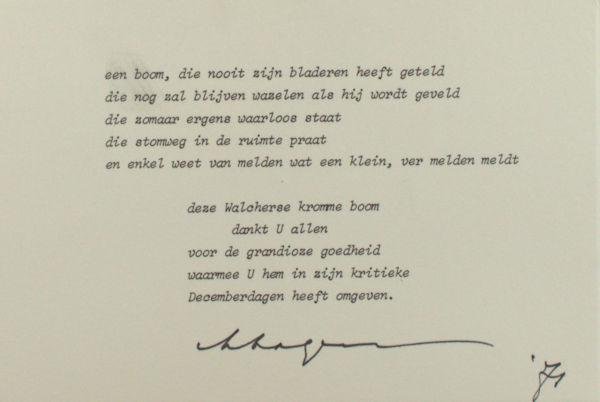 een boom, die nooit zijn bladeren heeft geteld
die nog zal blijven wazelen als hij wordt geveld
die zomaar ergens waarloos staat
die stomweg in de ruimte praat
en enkel weet van melden wat een klein, ver melden meldt
deze Walcherse kromme boom
dankt U allen
voor de grandioze goedheid
waarmee U hem in zijn kritieke
Decemberdagen heeft omgeven.
'71